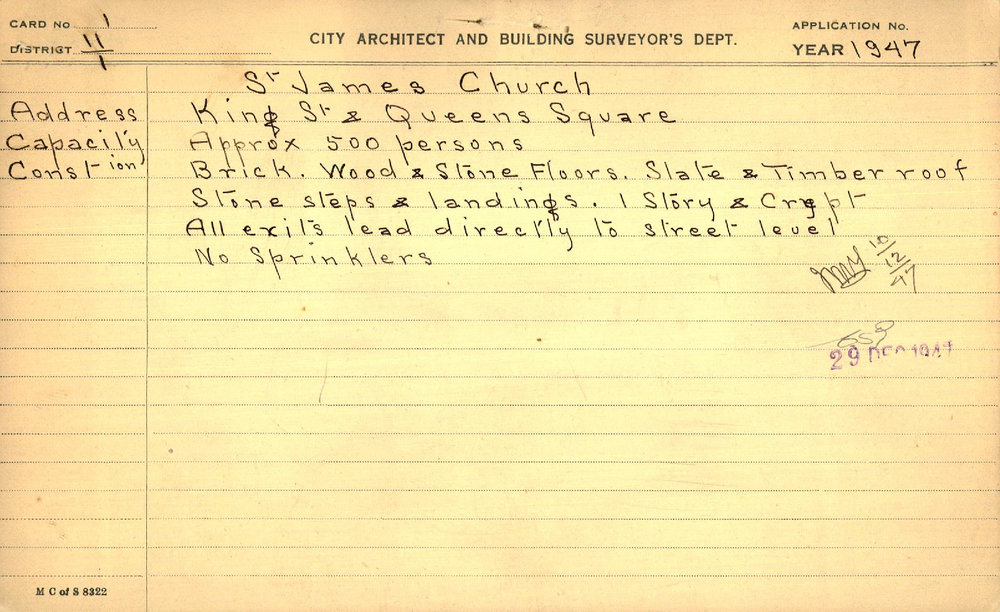 CARD NO 1
DISTRICT 11/1
CITY ARCHITECT AND BUILDING SURVEYOR'S DEPT.
APPLICATION NO.
YEAR 1947
St James Church
Address King St & Queens Square
Capacity Approx 500 persons
Const ion Brick. Wood & Stone Floors. Slate & Timber roof
Stone steps & landings. 1 Story & Crypt
All exits lead directly to street level
No Sprinklers
10/12/47
29 DEC 1947
M C of S 8322